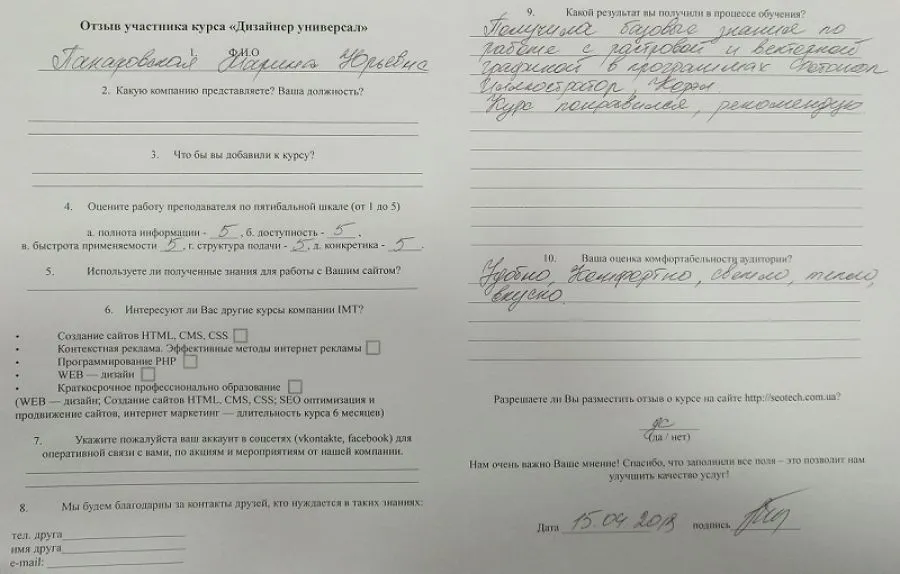 Отзыв участника курса «Дизайнер универсал»
1. Ф.И.О
Марина Юрьевна
2. Какую компанию представляете? Ваша должность?
3. Что бы вы добавили к курсу?
4. Оцените работу преподавателя по пятибальной шкале (от 1 до 5)
а. полнота информации - 5, б. доступность - 5,
в. быстрота применяемости 5, г. структура подачи - 5, д. конкретика - 5.
5. Используете ли полученные знания для работы с Вашим сайтом?
6. Интересуют ли Вас другие курсы компании IMT?
• Создание сайтов HTML, CMS, CSS
• Контекстная реклама. Эффективные методы интернет рекламы
• Программирование PHP
• WEB — дизайн
• Краткосрочное профессионально образование
(WEB — дизайн; Создание сайтов HTML, CMS, CSS; SEO оптимизация и
продвижение сайтов, интернет маркетинг — длительность курса 6 месяцев)
7. Укажите пожалуйста ваш аккаунт в соцсетях (vkontakte, facebook) для
оперативной связи с вами, по акциям и мероприятиям от нашей компании.
8. Мы будем благодарны за контакты друзей, кто нуждается в таких знаниях:
тел. друга
имя друга
e-mail:
9. Какой результат вы получили в процессе обучения?
Получила базовые знания по
работе с растровой и векторной
графикой в программах Фотошоп
Иллюстратор, Корэл.
Курс понравился, рекомендую
10. Ваша оценка комфортабельности аудитории?
Удобно, Комфортно, светло, тепло,
вкусно.
Разрешаете ли Вы разместить отзыв о курсе на сайте http://seotech.com.ua?
да
(да / нет)
Нам очень важно Ваше мнение! Спасибо, что заполнили все поля – это позволит нам
улучшить качество услуг!
Дата 15.04 2013 подпись